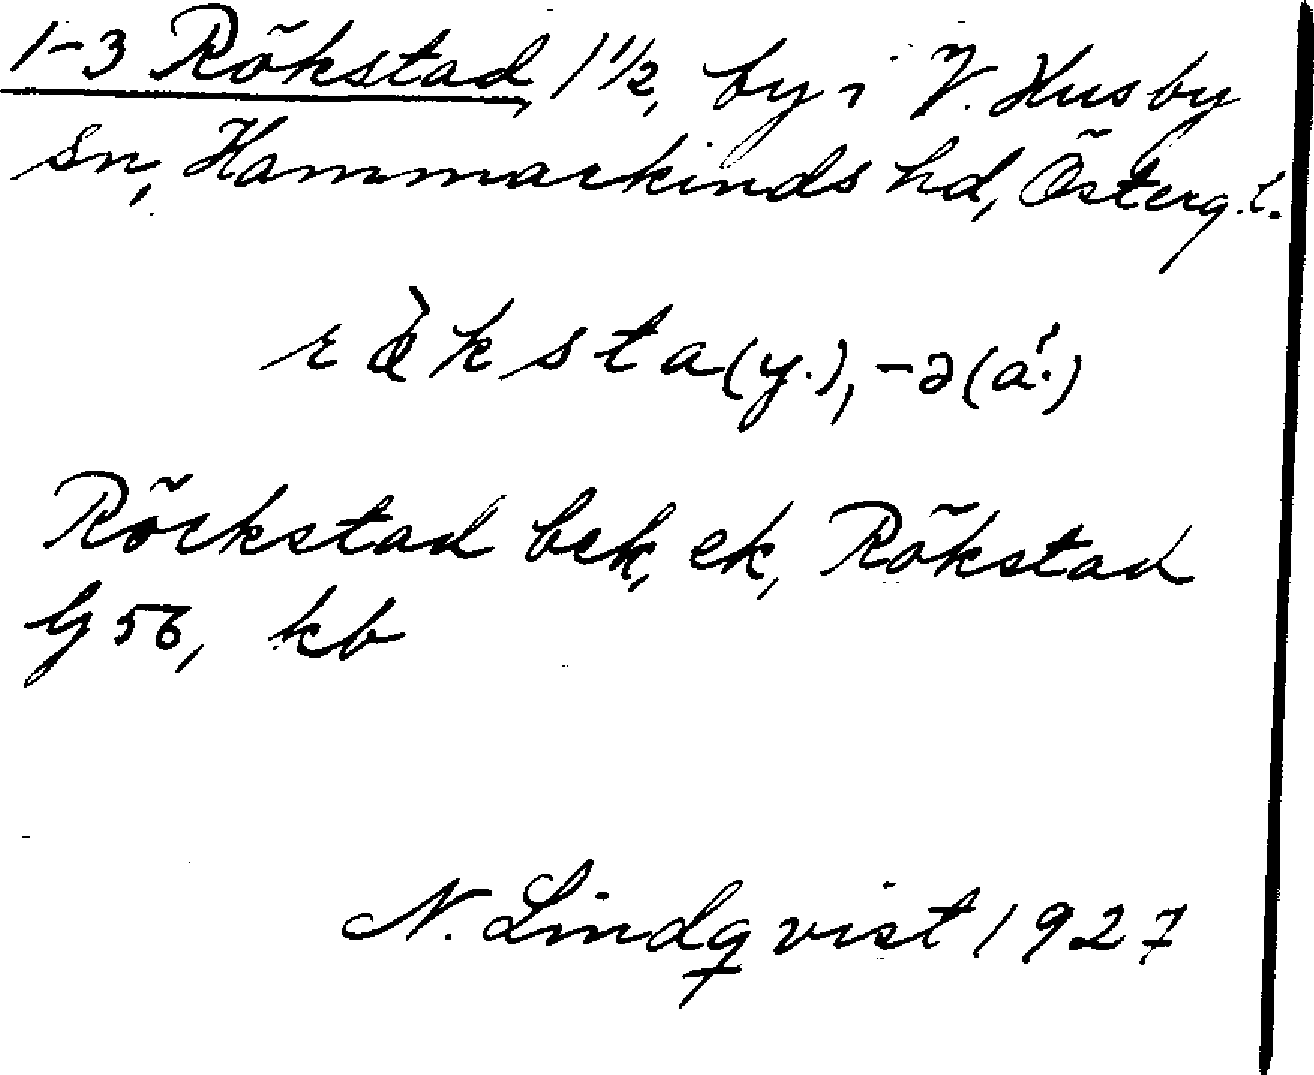 1-3 Rökstad, 1 1/2, by i V. Husby
sn, Hammarkinds hd, Österg. l.
ksta (y.), -ə (ä.)
Rörkstad bek, ek, Rökstad
G 56, kb
N. Lindqvist 1927